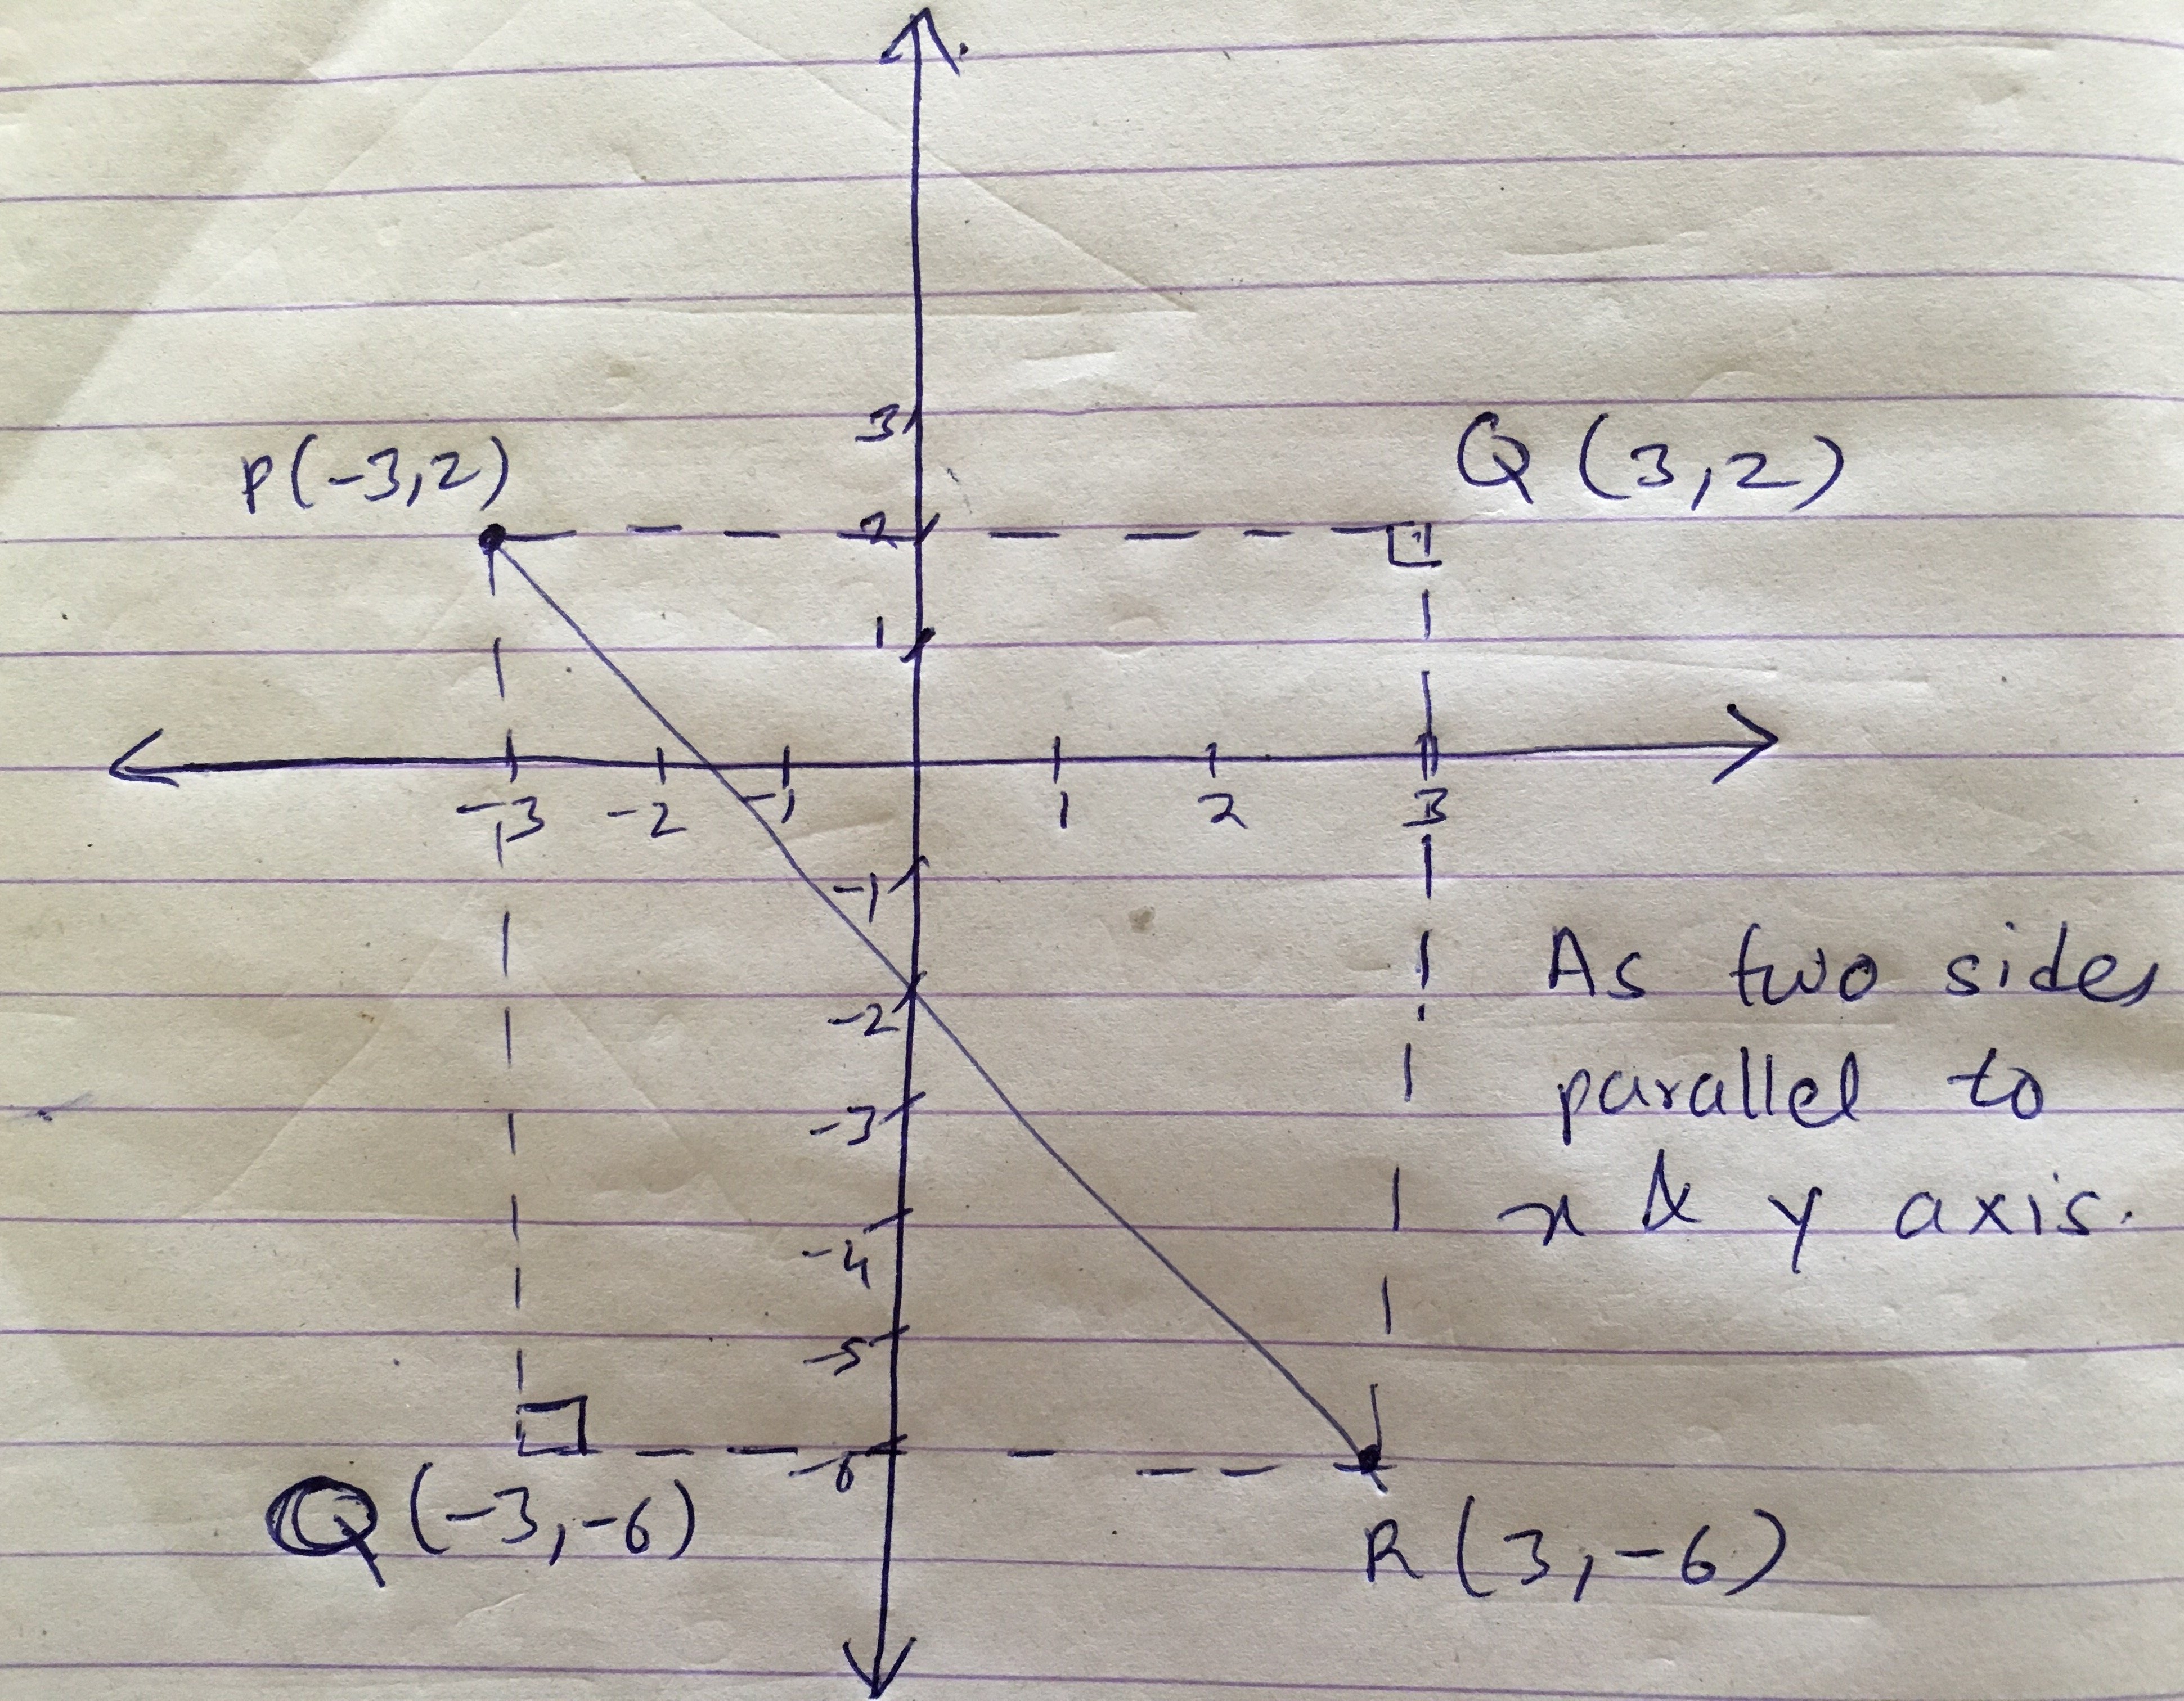 3
P(-3,2)
Q (3,2)
2
1
-3 -2 -1 1 2 3
-1
-2
-3
-4
-5
-6
As two sides
parallel to
x & y axis.
Q (-3,-6)
R (3,-6)